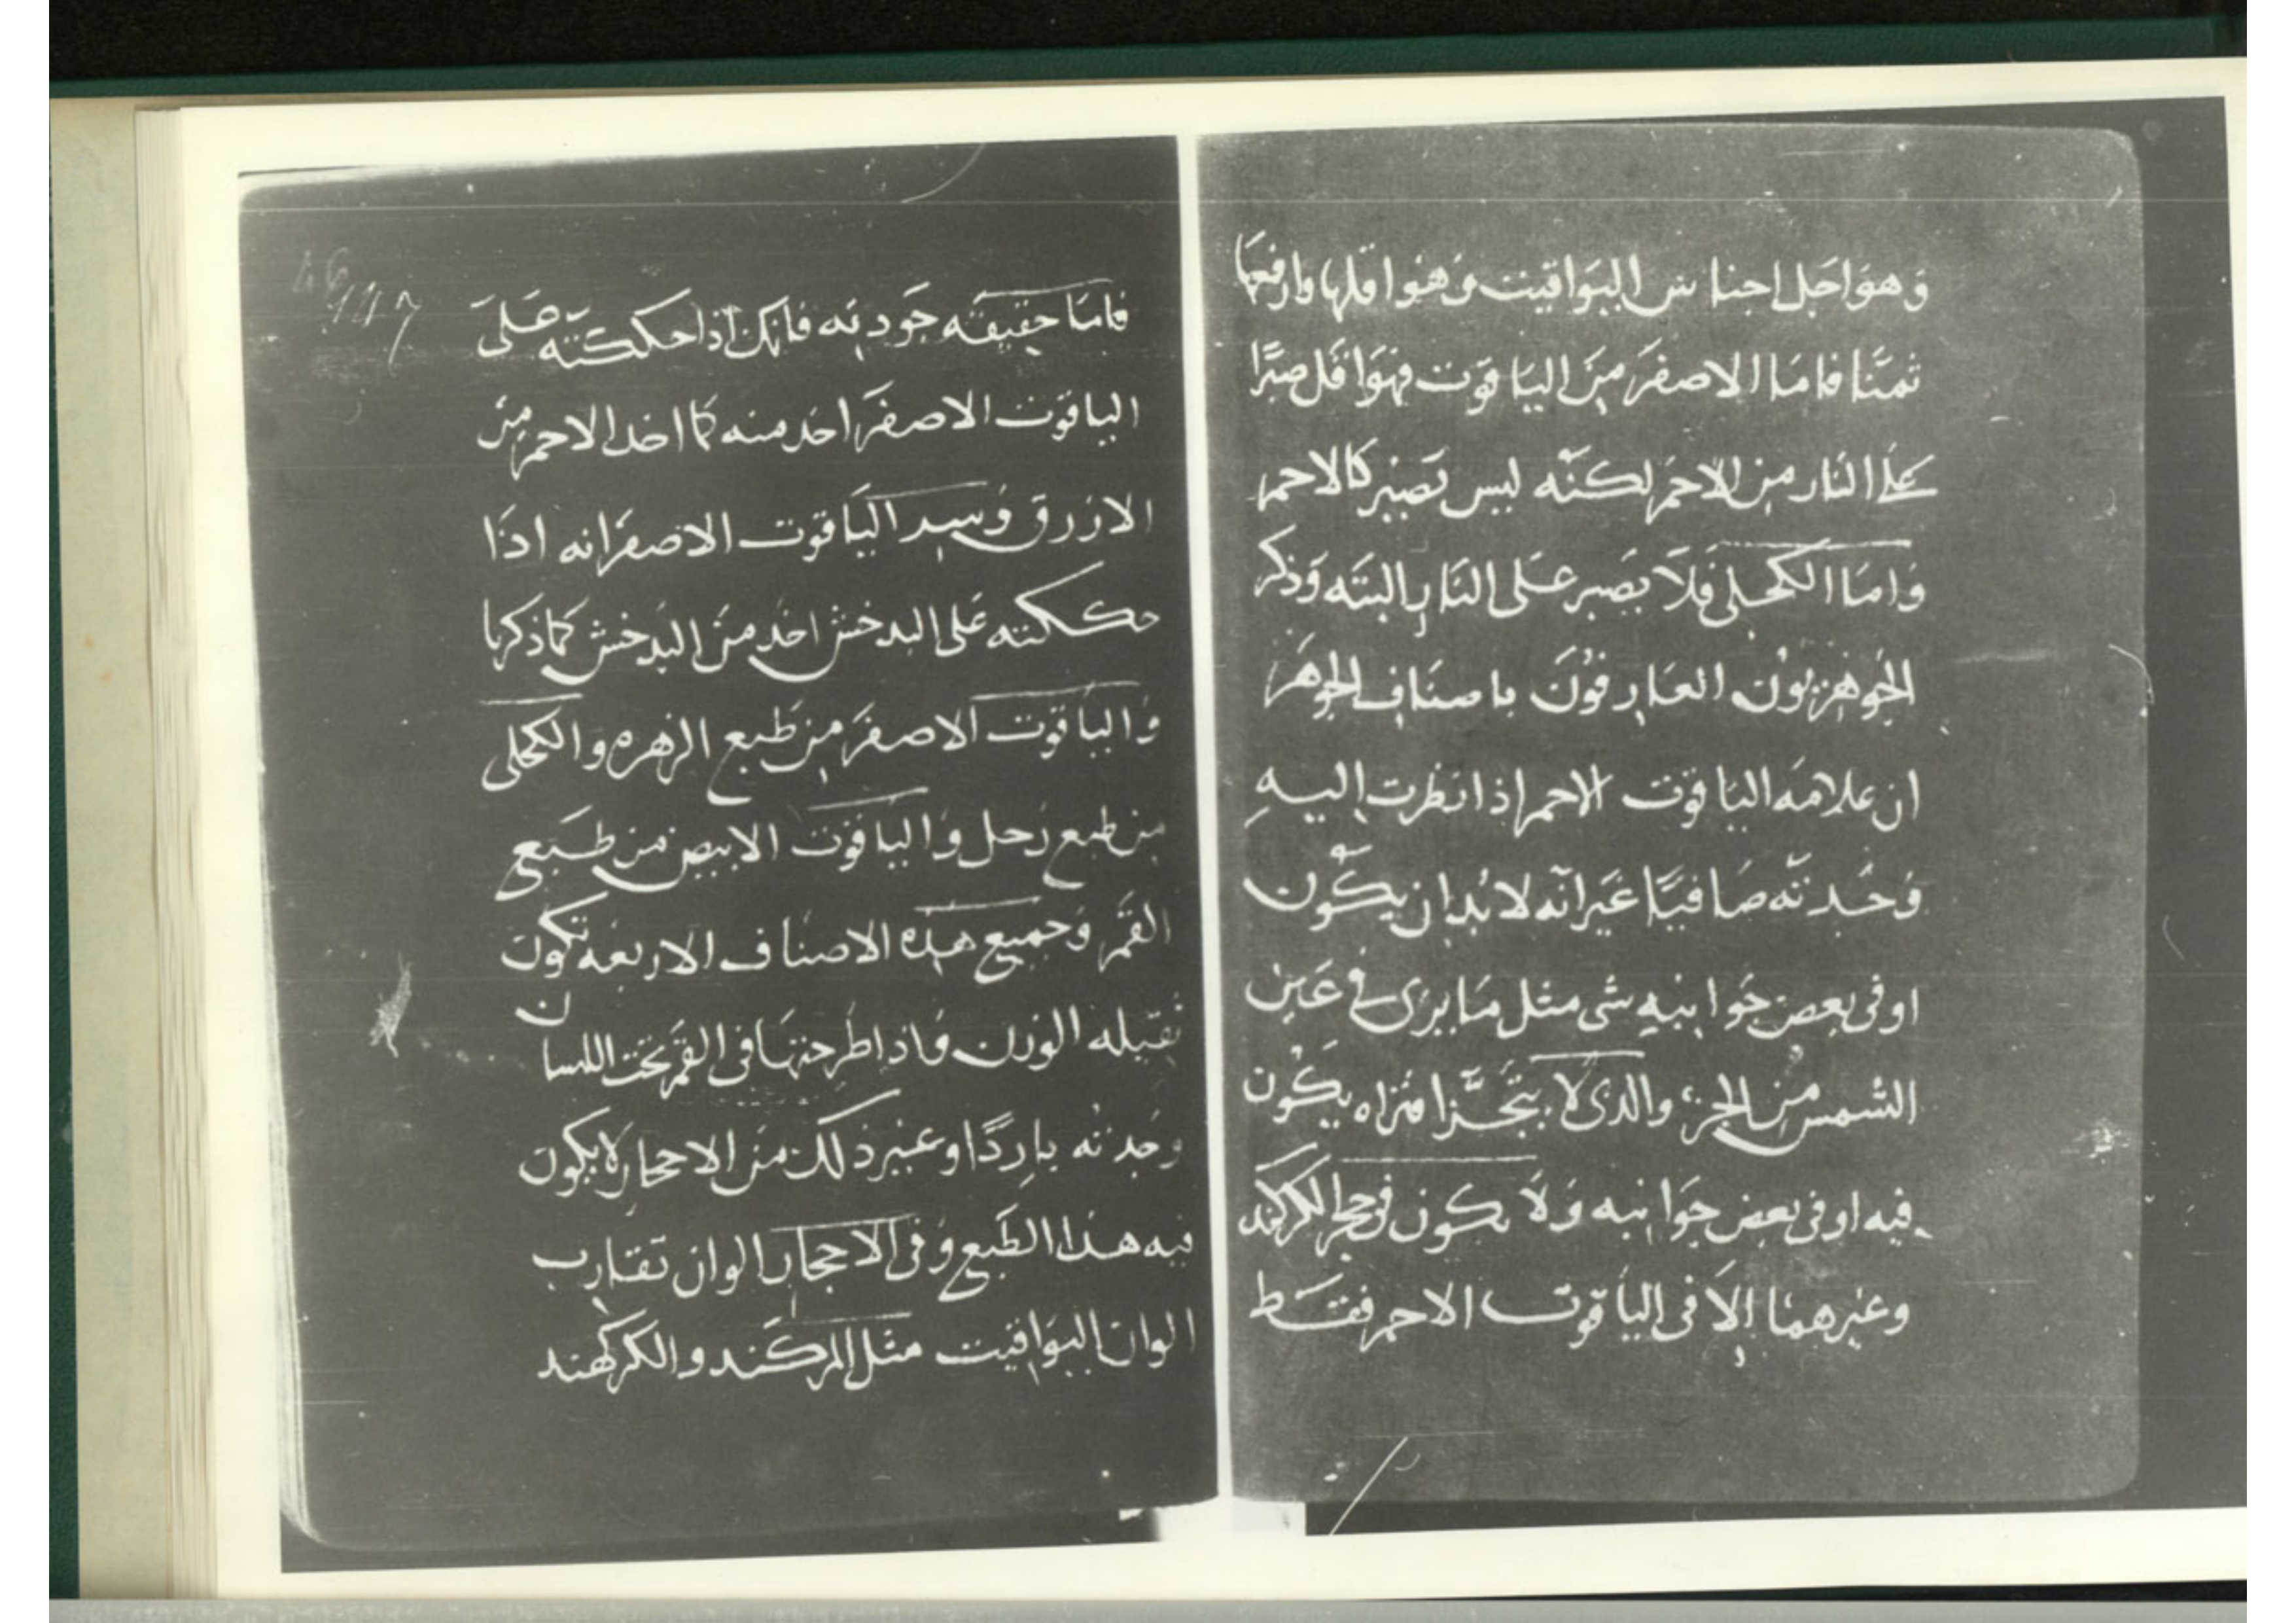 وهو اجل اجناس اليواقيت وهو اقلها وارفعها
ثمنا فاما الاصفر من الياقوت فهو اقل صبرا
على النار من الاحمر لكنه ليس يصبر كالاحمر
واما الكحلى فلا يصبر على النار البته وذكر
الجوهريون العارفون باصناف الجوهر
ان علامه الياقوت الاحمر اذا نظرت اليه
وجدته صافيا غير انه لا بد ان يكون
او فى بعض جوانبه شى مثل ما يرى فى عين
الشمس من الجزء والدى لا يتجزا فتراه يكون
فيه او فى بعض جوانبه ولا يكون فى حجر الكركند
وغيرهما الا فى الياقوت الاحمر فقط
فاما حقيقه جودته فانك اذا حككته على
الياقوت الاصفر اخد منه كما اخد الاحمر من
الازرق وسيد الياقوت الاصفر انه اذا
حككته على البدخش اخد من البدخش كما ذكرنا
والياقوت الاصفر من طبع الزهره والكحلى
من طبع زحل والياقوت الابيض من طبع
القمر وجميع هده الاصناف الاربعه تكون
ثقيله الوزن فاذا طرحتها فى الفم تحت اللسان
وجدته باردا وغير ذلك من الاحجار لا يكون
فيه هذا الطبع وفى الاحجار الوان تقارب
الوان اليواقيت مثل المركند والكركهند